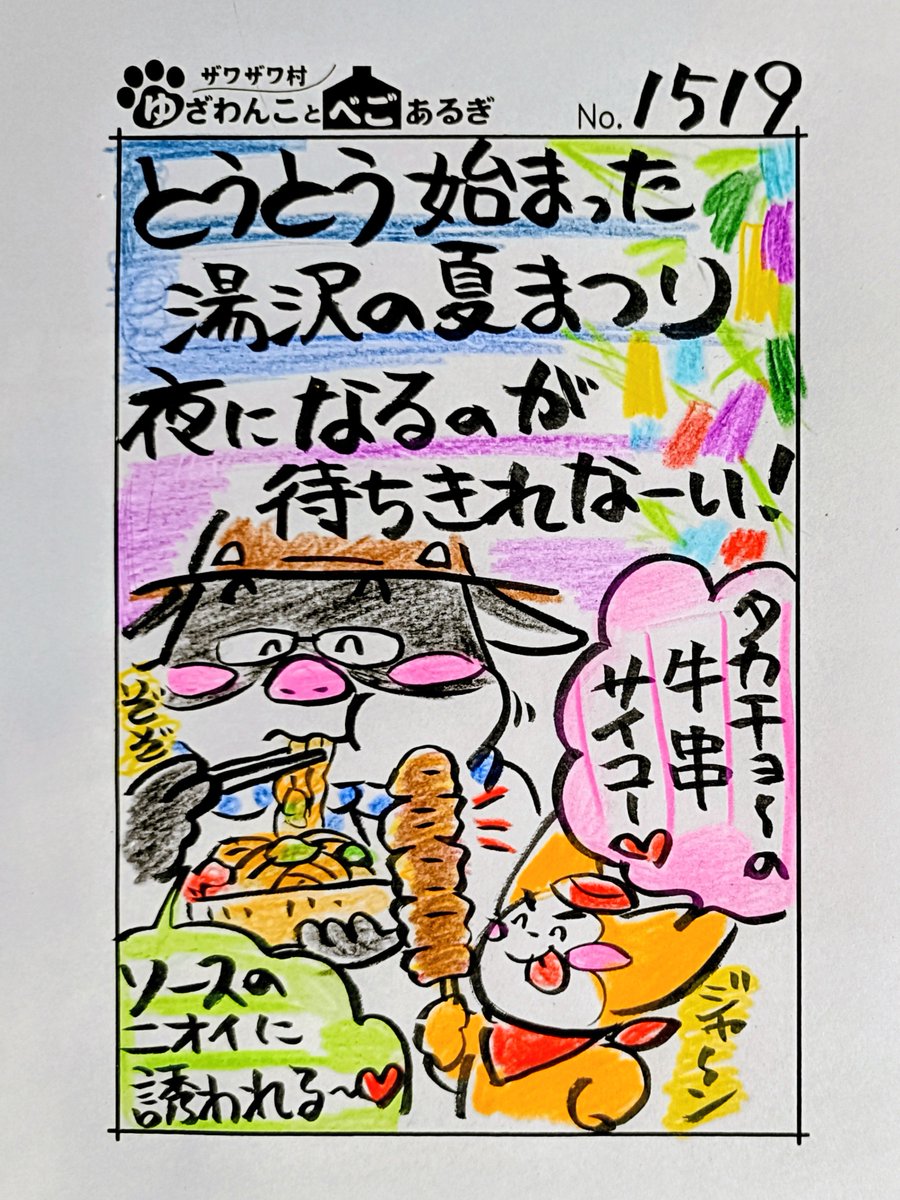 ザワザワ村
ゆざわんことべごあるぎ
No. 1519
とうとう始まった
湯沢の夏まつり
夜になるのが
待ちきれなーい!
タカチョ〜の
牛串
サイコー
ぞぞぞ
ソースの
ニオイに
誘われる〜
ジャ〜ン